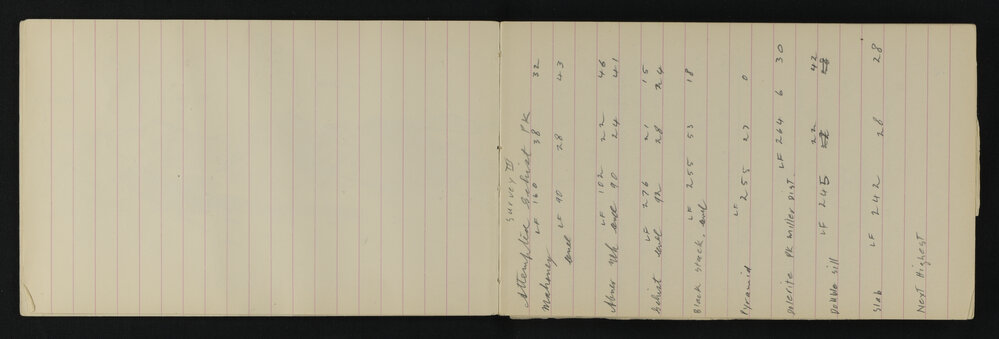 Survey IV
Attempted Schist PK
Mahoney LF 160 38 32
end LF 90 28 43
Abner Pk LF 102 22 46
end 90 24 41
Schist LF 276 21 15
end 92 28 24
Black stack. end LF 255 53 18
Pyramid LF 255 27 0
Dolerite PK Miller Dist LF 264 6 30
Double sill LF 245 22 42
28 28
Slab LF 242 28 28
Next Highest